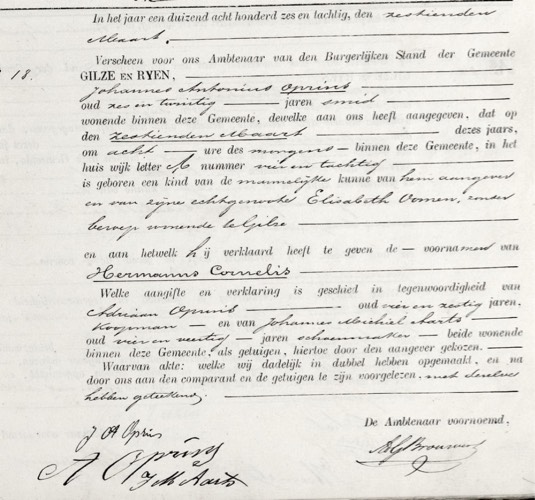 In het jaar een duizend acht honderd zes en tachtig, den zestienden
Maart.
Verscheen voor ons Ambtenaar van den Burgerlijken Stand der Gemeente
18.
GILZE EN RYEN,
Johannes Antonius Oprins
oud zes en twintig jaren smid
wonende binnen deze Gemeente, dewelke aan ons heeft aangegeven, dat op
den zestienden Maart dezes jaars,
om acht ure des morgens binnen deze Gemeente, in het
huis wijk letter A nummer vier en tachtig
is geboren een kind van de mannelijke kunne van hem aangever
en van zijne echtgenoote Elisabeth Oomen, zonder
beroep wonende te Gilze
en aan hetwelk hij verklaard heeft te geven de voornamen van
Hermanus Cornelis
Welke aangifte en verklaring is geschied in tegenwoordigheid van
Adriaan Oprins oud vier en zestig jaren,
Koopman en van Johannes Michiel Aarts
oud vier en veertig jaren schoenmaker beide wonende
binnen deze Gemeente, als getuigen, hiertoe door den aangever gekozen.
Waarvan akte: welke wij dadelijk in dubbel hebben opgemaakt, en na
door ons aan den comparant en de getuigen te zijn voorgelezen, met dezelve
hebben geteekend.
De Ambtenaar voornoemd,
J A Oprins
A Oprins
J M Aarts